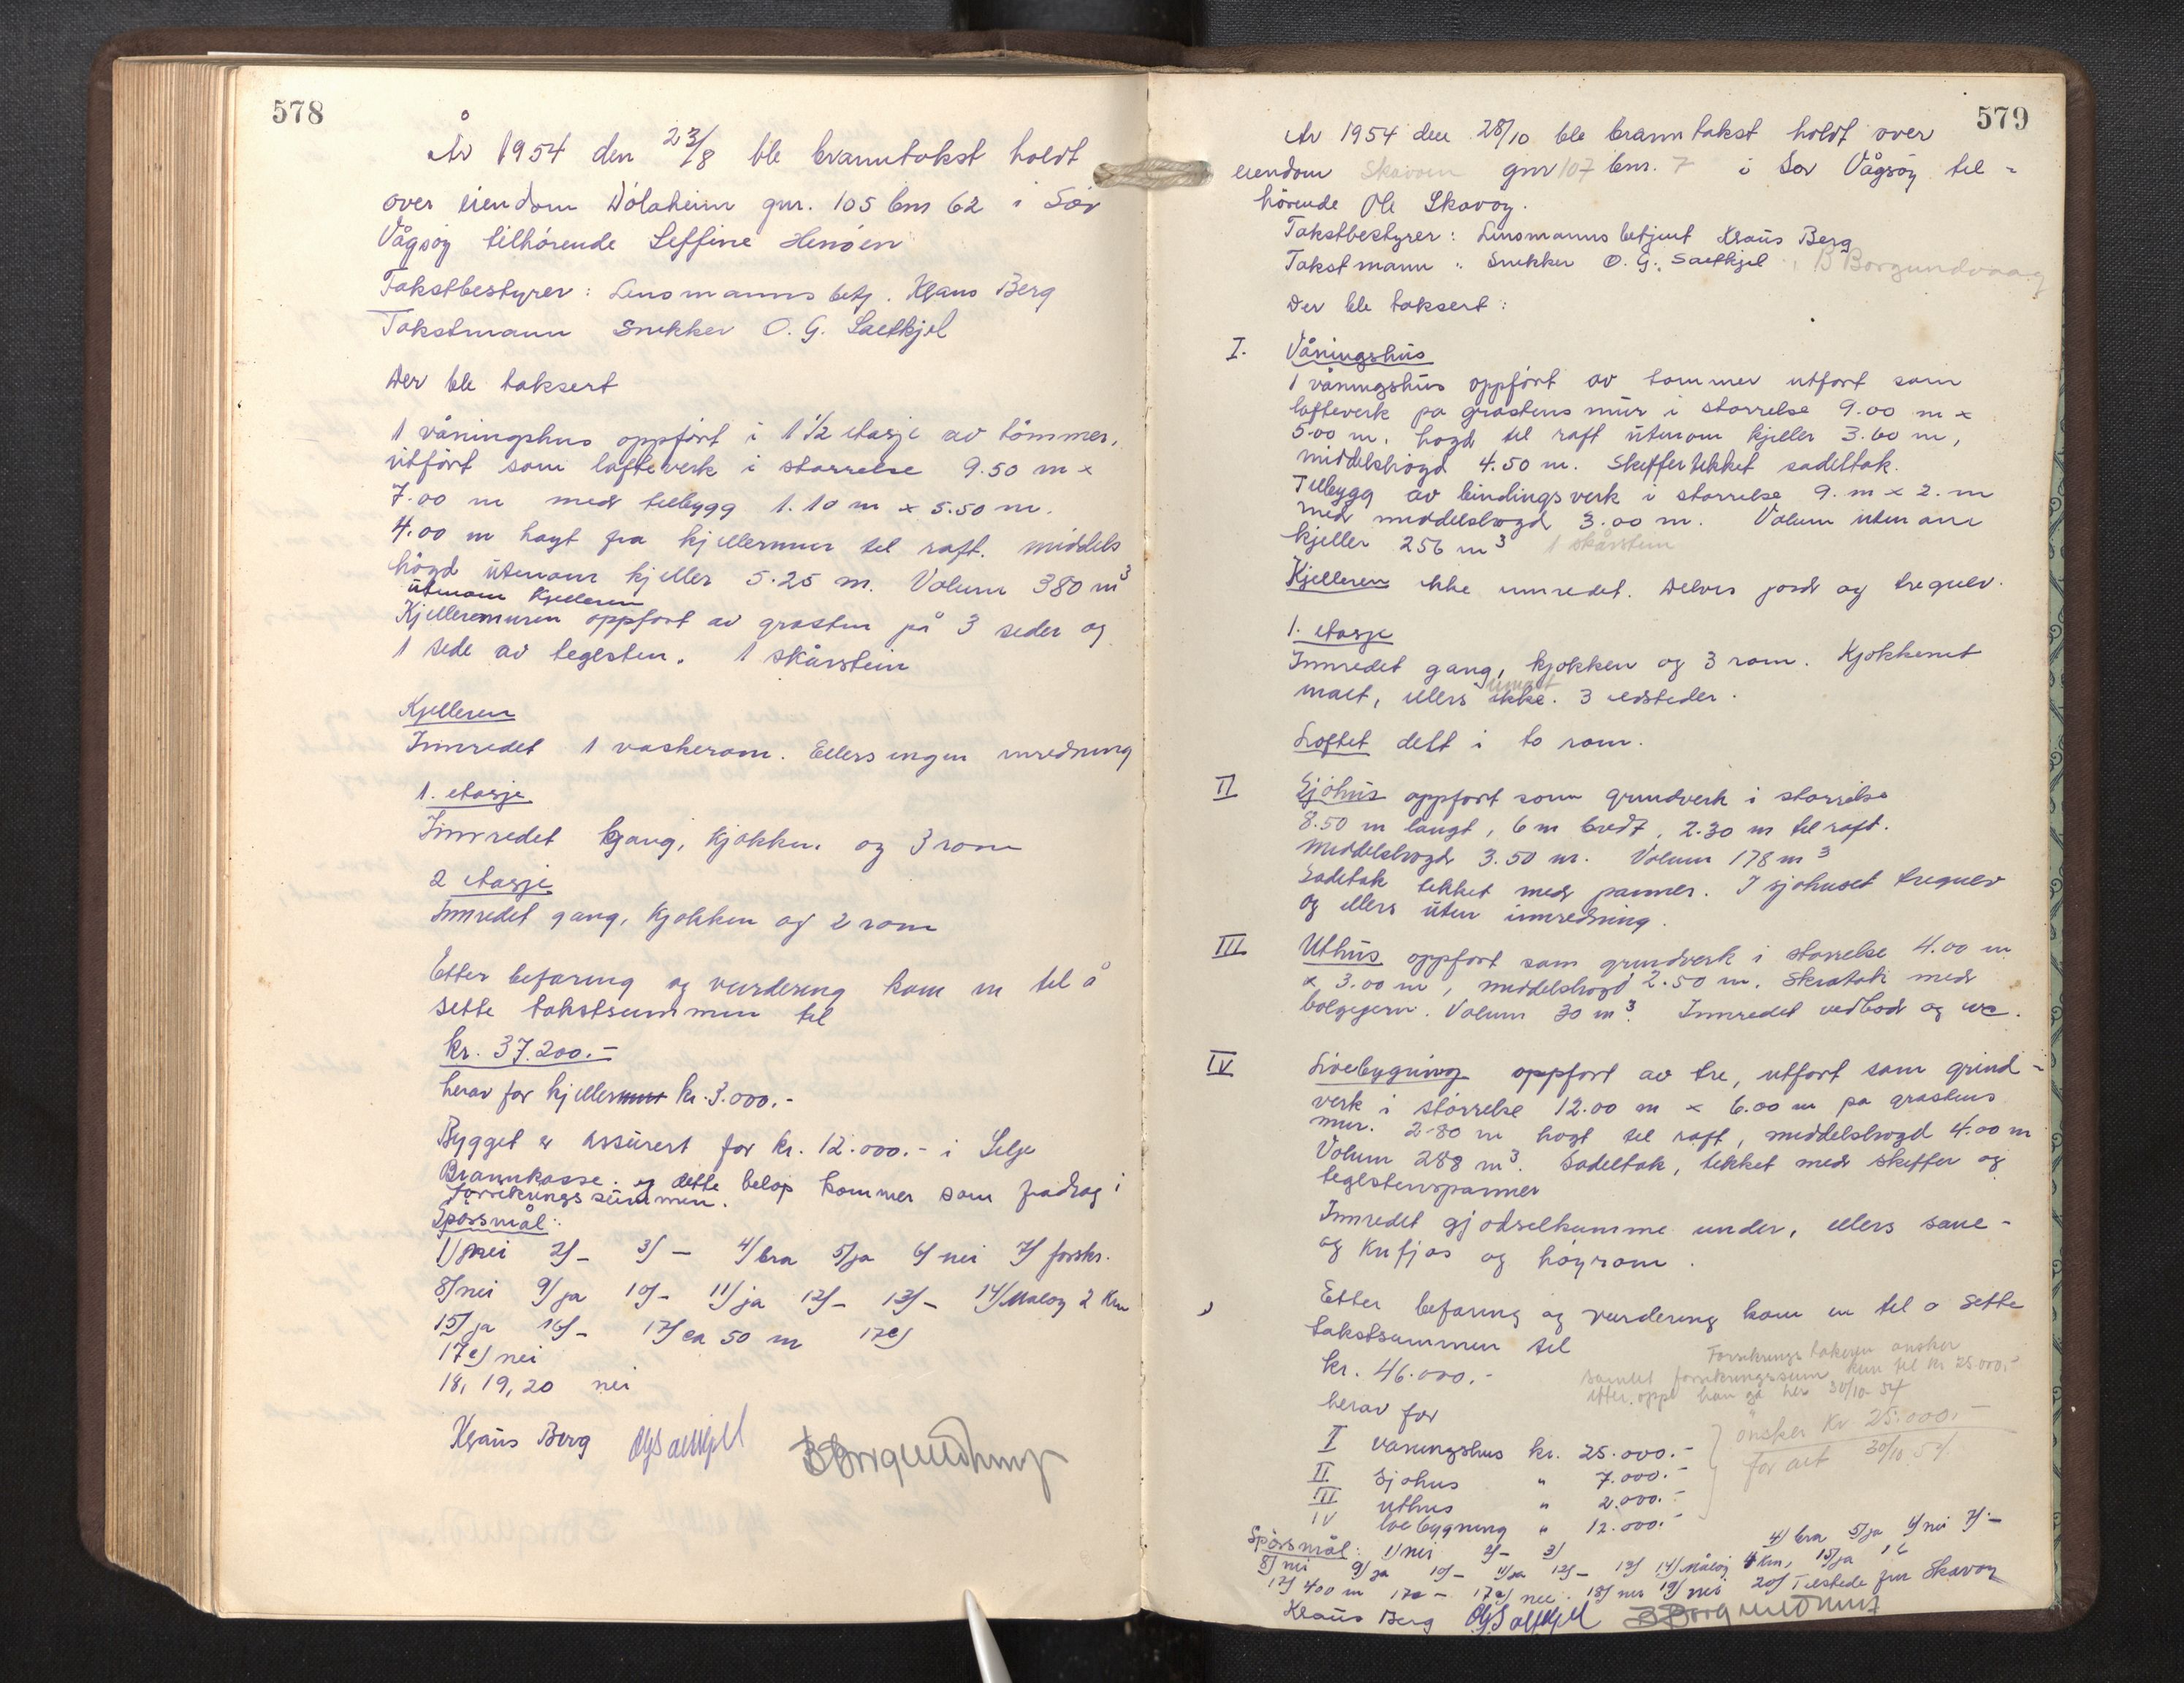 578
År 1954 den 23/8 ble branntakst holdt
over eiendom Solaheim gnr. 105 bnr 62 i Sør
Vågsøy tilhörende Seffine Henöen
Takstbestyrer: Lensmanns betj. Klaus Berg
Takstmann Snekker O. G. Saetkjel
Der ble taksert
1 våningshus oppfört i 1 1/2 etasje av tömmer,
utfört som lafteverk i storrelse 9.50 m x
7.00 m med tilbygg 1.10 m x 5.50 m.
4.00 m hogt fra kjellermur til raft. middels
högd utenom kjeller 5.25 m. Volum 380 m³
utenom kjelleren
Kjelleremuren oppfort av grasten på 3 sider og
1 side av teglsten. 1 skårstein
Kjelleren
Innredet 1 vaskerom. Ellers ingen inredning
1. etasje
Innredet gang, kjøkken og 3 rom
2 etasje
Innredet gang, kjøkken og 2 rom
Etter befaring og vurdering kom en til å
sette takstsummen til
kr. 37.200.-
herav for kjellermur kr. 3.000.-
Bygget er assurert for kr. 12.000.- i Selje
Brannkasse. og dette beløp kommer som fradrag i
forsikringssummen.
Spörsmål:
1/ nei 2/- 3/- 4/ bra 5/ ja 6/ nei 7/ forskr.
8/ nei 9/ ja 10/- 11/ ja 12/- 13/- 14/ Måløy 2 km
15/ ja 16/- 17/ ca 50 m 17c/
17e/ nei
18, 19, 20 nei
Klaus Berg OGSaetkjel BBorgundvaag
579
År 1954 den 28/10 ble branntakst holdt over
eiendom Skavøen gnr 107 bnr. 7 i Sør Vågsøy til-
hörende Ole Skavøy.
Takstbestyrer: Lensmanns betjent Klaus Berg
Takstmann: Snekker O. G. Saetkjel, B Borgundvaag
Der ble taksert:
I. Våningshus
1 våningshus oppfört av tømmer utfort som
lafteverk på grastens mur i storrelse 9.00 m x
5.00 m. hogd til raft utenom kjeller 3.60 m,
middelshögd 4.50 m. Skiffertekket sadeltak.
Tilbygg av bindingsverk i storrelse 9. m x 2. m
med middelshogd 3.00 m. Volum utenom
kjeller 256 m³ 1 skårstein
Kjelleren ikke innredet. Delvis jord og tregulv.
1. etasje
Innredet gang, kjøkken og 3 rom. Kjøkkenet
malt, ellers ikke. 3 ildsteder.
umalt
Loftet delt i to rom.
II Sjöhus oppfort som grindverk i storrelse
8.50 m langt, 6 m bredt, 2.30 m til raft.
Middelshogd 3.50 m. Volum 178 m³
Sadeltak tekket med panner. I sjøhuset tregulv
og ellers uten innredning.
III Uthus oppfort som grindverk i storrelse 4.00 m
x 3.00 m, middelshogd 2.50 m. Skratak med
bølgejern. Volum 30 m³. Innredet vedbod og wc.
IV Löebygning oppfort av tre, utfort som grind-
verk i störrelse 12.00 m x 6.00 m på grastens
mur. 2.80 m hogt til raft, middelshogd 4.00 m
Volum 288 m³. Sadeltak, tekket med skiffer og
teglstenspanner
Innredet gjødselkumme under, ellers saue-
og kufjøs og höyrom.
Etter befaring og vurdering kom en til å sette
takstsummen til
kr. 46.000.-
Forsikringstakeren ønsker
samlet forsikringssum kun til kr 25.000,-
etter oppg. han ga her 30/10-54
herav for
I Våningshus kr. 25.000.-
II Sjøhus " 7.000.-
III Uthus " 2.000.-
IV Löebygning " 12.000.-
ønsker kr 25.000.-
for alt 30/10.54.
Spörsmål: 1/ nei 2/- 3/ 4/ bra 5/ ja 6/ nei 7/-
8/ nei 9/ ja 10/- 11/ ja 12/- 13/ 14/ Måløy 4 km, 15/ ja 16
17/ 400 m 17c- 17e/ nei. 18/ nei 19/ nei 20/ Tilstede fru Skavøy
Klaus Berg OGSaetkjel BBorgundvaag